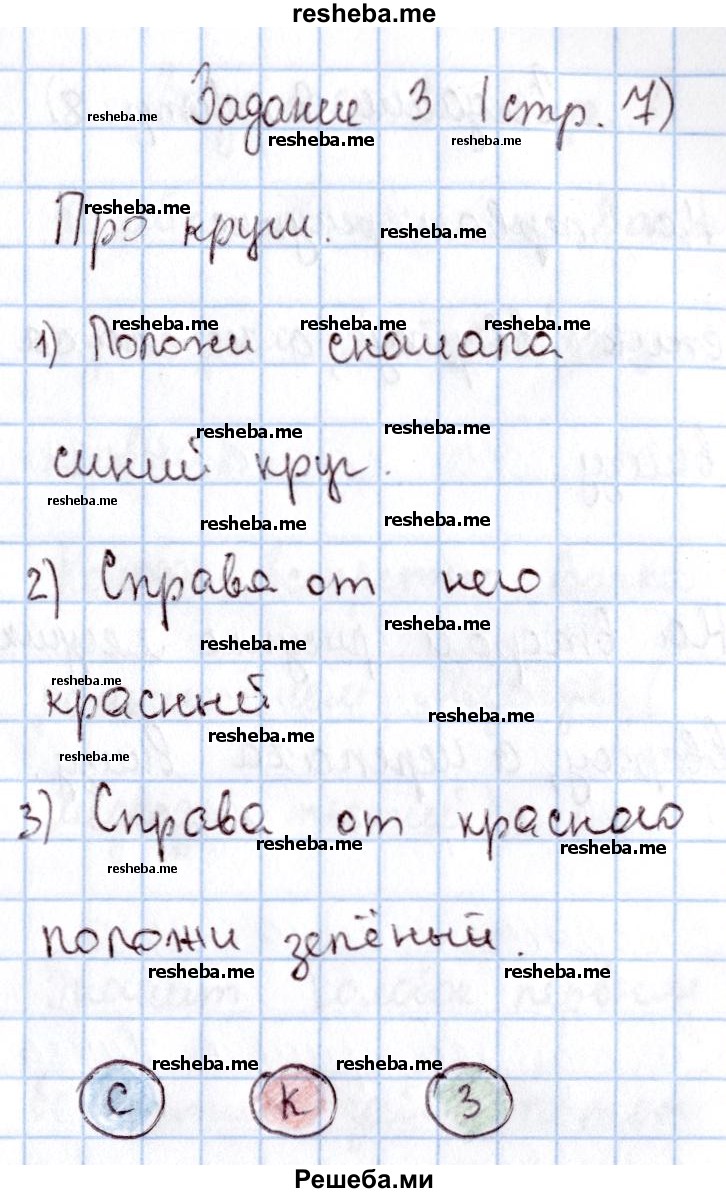 resheba.me
Задание 3 (стр. 7)
resheba.me
resheba.me resheba.me
resheba.me
Про круги.
resheba.me
resheba.me resheba.me resheba.me
1) Положи сначала
resheba.me resheba.me
синий круг.
resheba.me
resheba.me resheba.me
2) Справа от него
resheba.me
resheba.me
resheba.me
красный
resheba.me
resheba.me
resheba.me
3) Справа от красного
resheba.me resheba.me
resheba.me
положи зелёный.
resheba.me resheba.me
resheba.me resheba.me
С К З
Решеба.ми